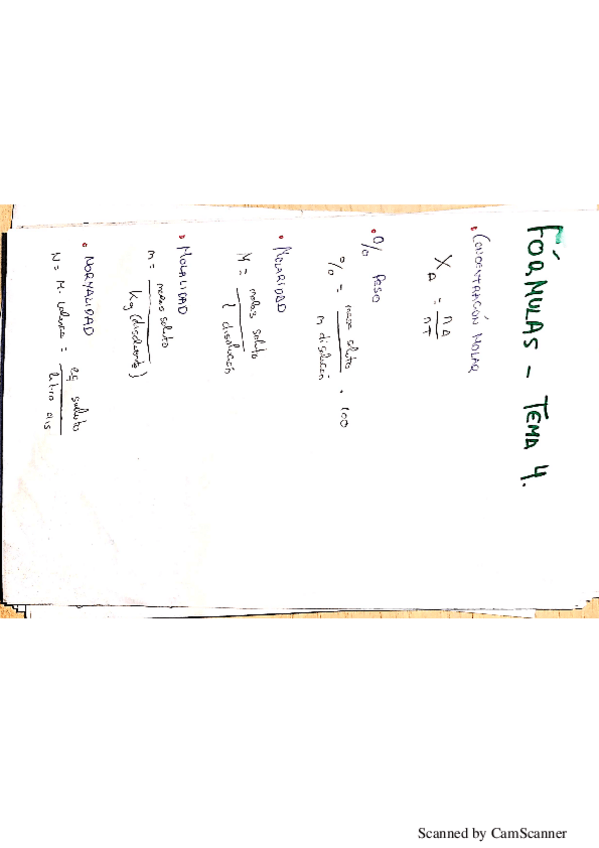 FÓRMULAS - TEMA 4.
• CONCENTRACIÓN MOLAR
X_A = n_A / n_T
• % PESO
% = masa soluto / m disolución · 100
• MOLARIDAD
M = moles soluto / l disolución
• MOLALIDAD
m = moles soluto / Kg (disolvente)
• NORMALIDAD
N = M. valencia = eq soluto / litro dis
Scanned by CamScanner